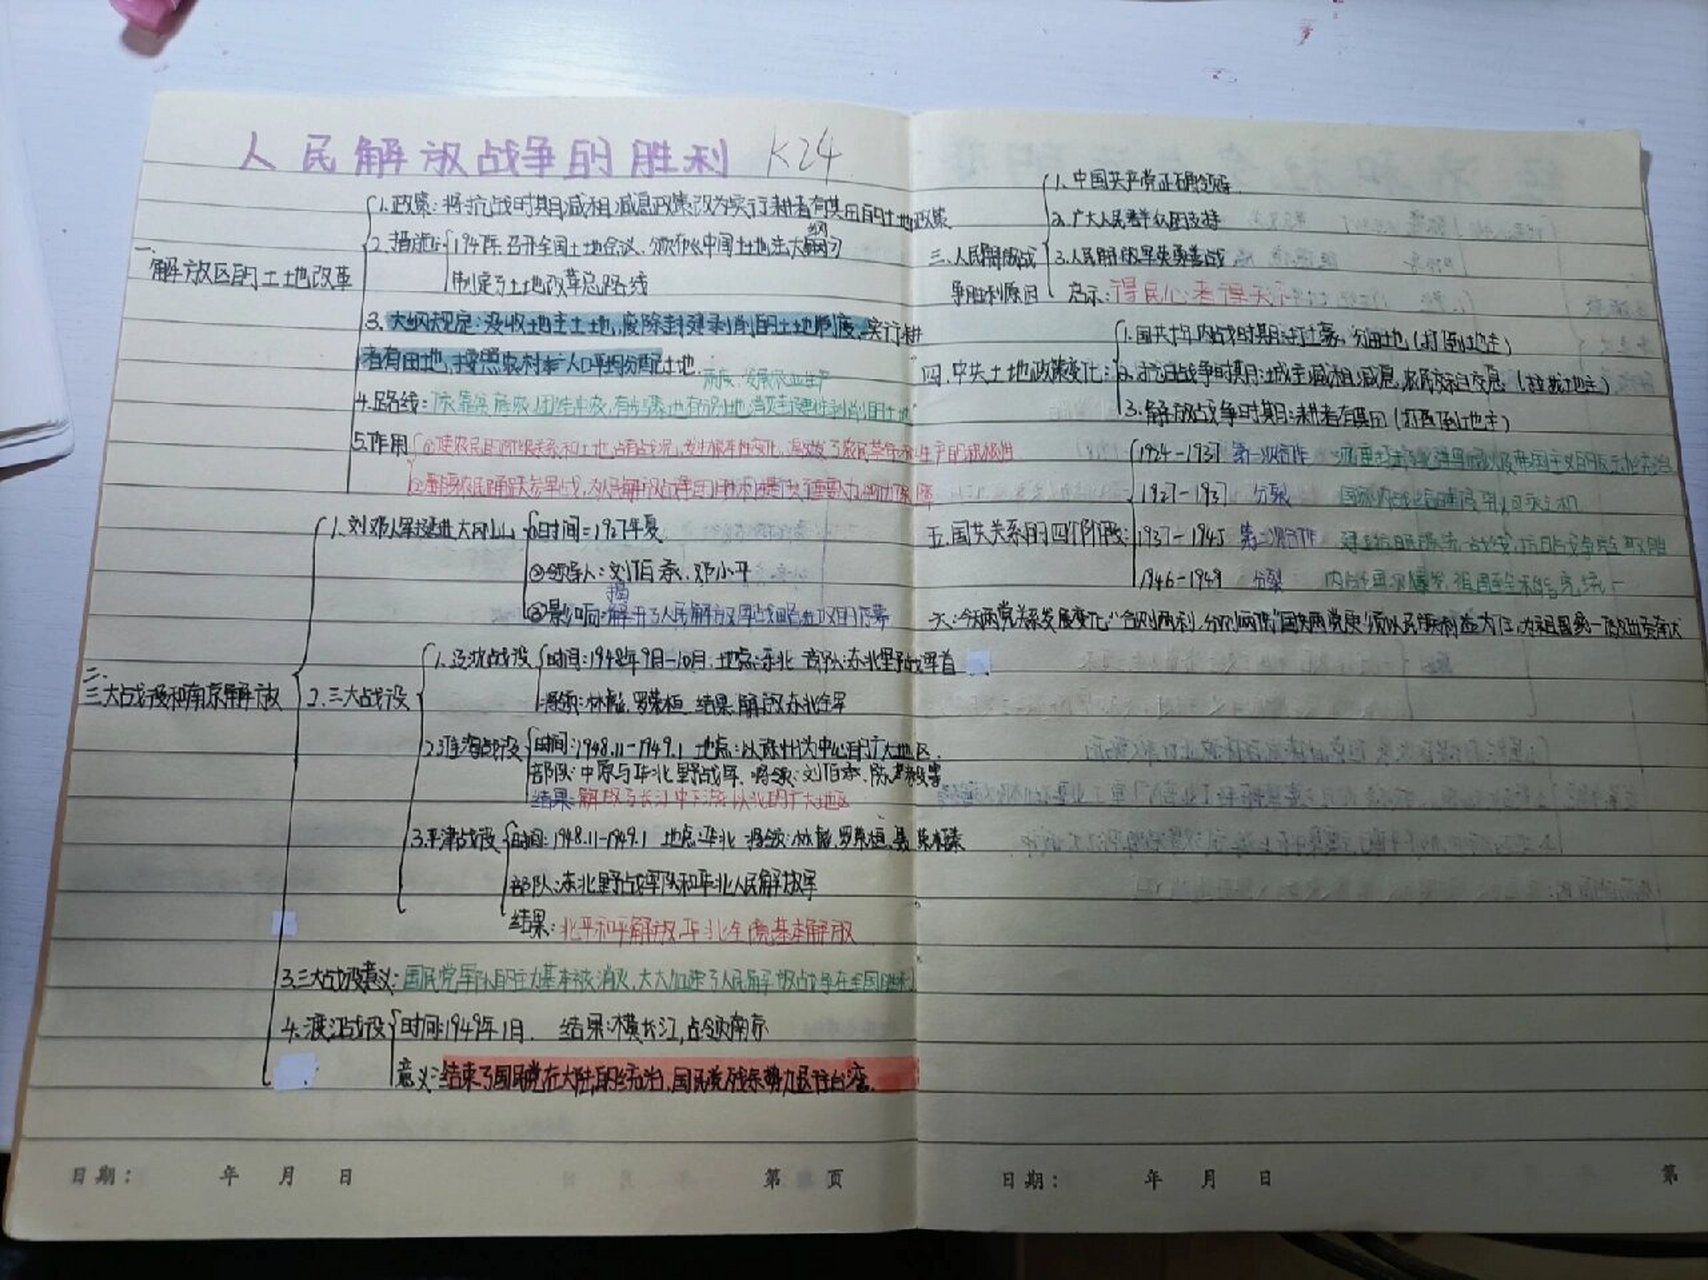 人民解放战争的胜利 K24
一、解放区的土地改革
1.政策:将抗战时期减租减息政策改为实行耕者有其田的土地政策
2.措施:1947年,召开全国土地会议,颁布《中国土地法大纲》
制定了土地改革总路线
3.大纲规定:没收地主土地,废除封建剥削的土地制度,实行耕
者有田地,按照农村 人口平均分配土地.
4.路线:依靠贫雇农,团结中农,有步骤地有分别地消灭封建性剥削的土地
制度,发展农业生产
5.作用
①使农民的阶级关系和土地占有状况,发生根本性变化,激发了农民革命和生产的积极性
②翻身农民踊跃参军参战,为人民解放战争的胜利提供了重要人力物力保障
二、三大战役和南京解放
1.刘邓大军挺进大别山
①时间=1927年夏
②领导人:刘伯承、邓小平
③影响:揭开了人民解放军战略进攻的序幕
2.三大战役
1.辽沈战役
时间:1948年9月-10月.地点:东北 部队:东北野战军首
将领:林彪、罗荣桓 结果:解放东北全军
2.淮海战役
时间:1948.11-1949.1 地点:以徐州为中心的广大地区.
部队:中原与华北野战军、将领:刘伯承、陈 等
结果:解放了长江中下游以北的广大地区
3.平津战役
时间:1948.11-1949.1 地点:华北 将领:林彪、罗荣桓、聂荣臻
部队:东北野战军队和华北人民解放军
结果:北平和平解放,华北全境基本解放
3.三大战役意义:国民党军队的主力基本被消灭,大大加速了人民解放战争在全国胜利
4.渡江战役
时间:1949年1月. 结果:横长江,占领南京
意义:结束了国民党在大陆的统治,国民党残余势力退往台湾.
三.人民解放战
争胜利原因
1.中国共产党正确领导.
2.广大人民群众的支持
3.人民解放军英勇善战
启示:得民心者得天下
四.中共土地政策变化:
1.国共十年内战时期:打土豪,分田地(打倒地主)
2.抗日战争时期:地主减租减息,农民交租交息(拉拢地主)
3.解放战争时期:耕者有其田(打倒地主)
五.国共关系的四个阶段:
1924-1937 第一次合作
1927-1937 分裂
1937-1945 第二次合作 建立抗日 统一战线,抗日战争 取得胜
1946-1949 分裂 内战再次爆发,祖国至今尚 统一
六:今天两党关系发展变化:"合则两利,分则两 "国共两党 以民族利益为 为祖国统一
日期: 年 月 日 第 页
日期: 年 月 日 第